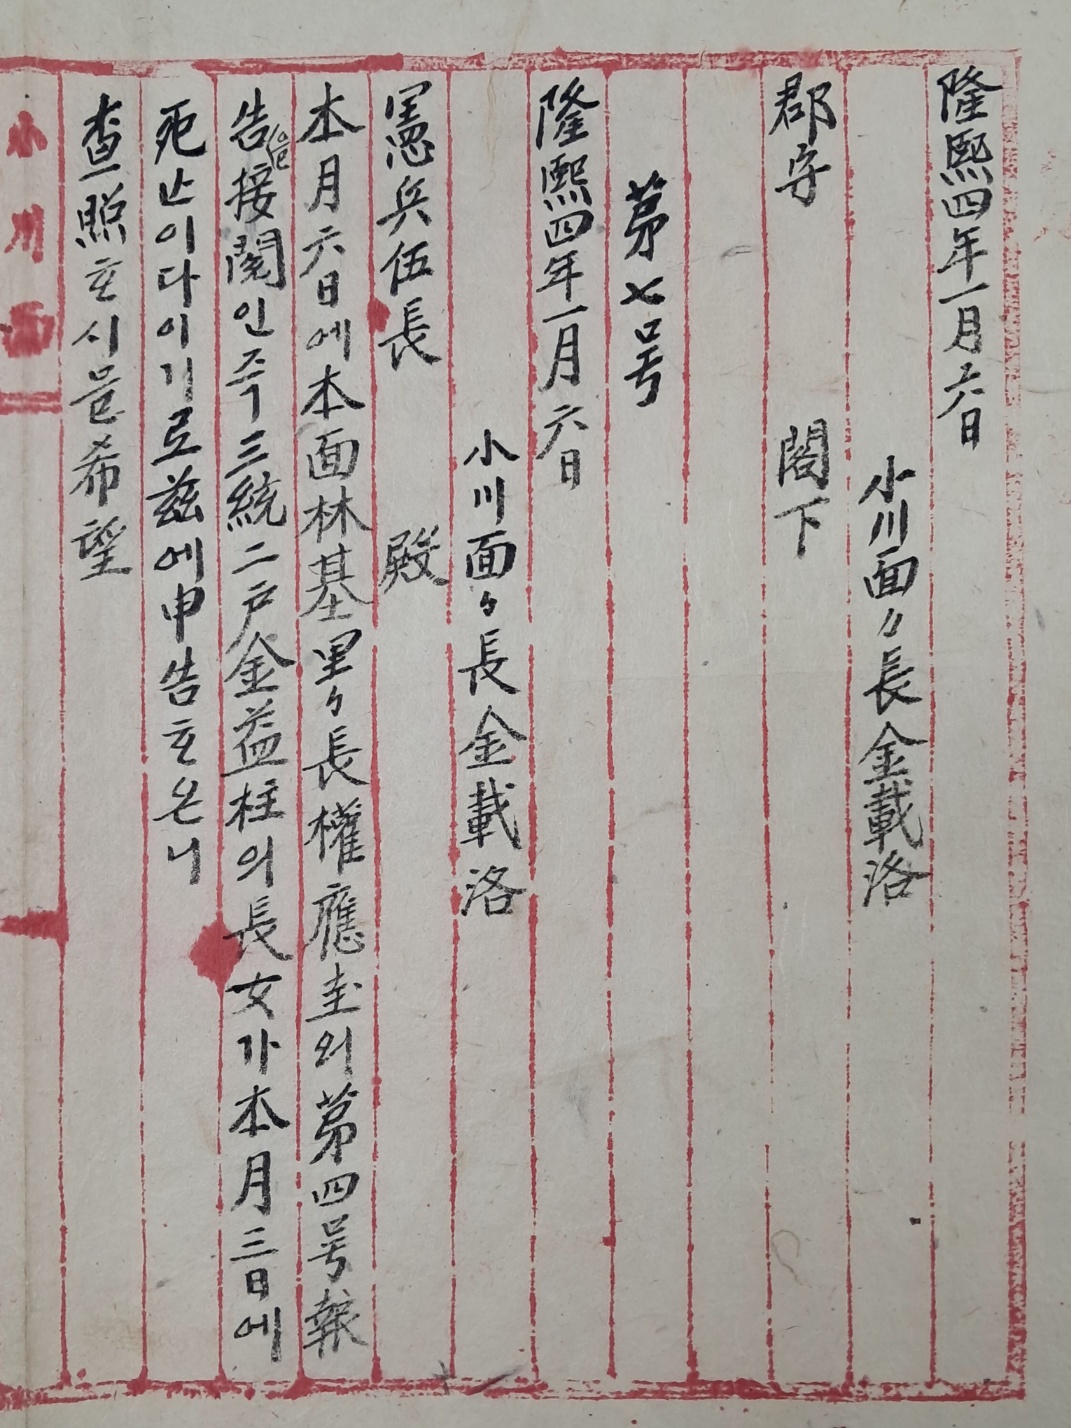 隆熙四年一月六日
小川面〃長金載洛
郡守 閣下
第七号
隆熙四年一月六日
小川面々長金載洛
憲兵伍長 殿
本月六日에本面林基里々長權應圭의第四号報
告를接閱인즉三統二戶金益柱의長女가本月三日에
死亡이다이기로玆에申告ᄒᆞ오니
査照ᄒᆞ시믈希望
小川面